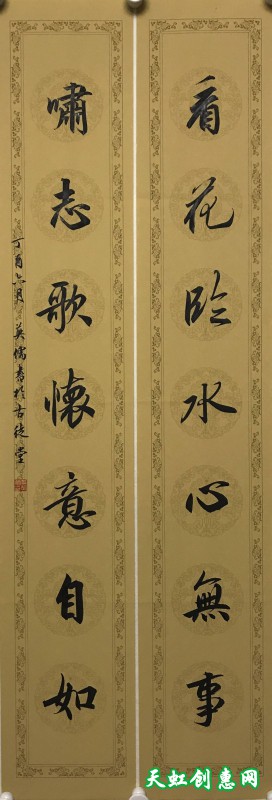 看花临水心無事
嘯志歌懷意自如
丁酉六月 英儒書於古徒堂
天虹创惠网